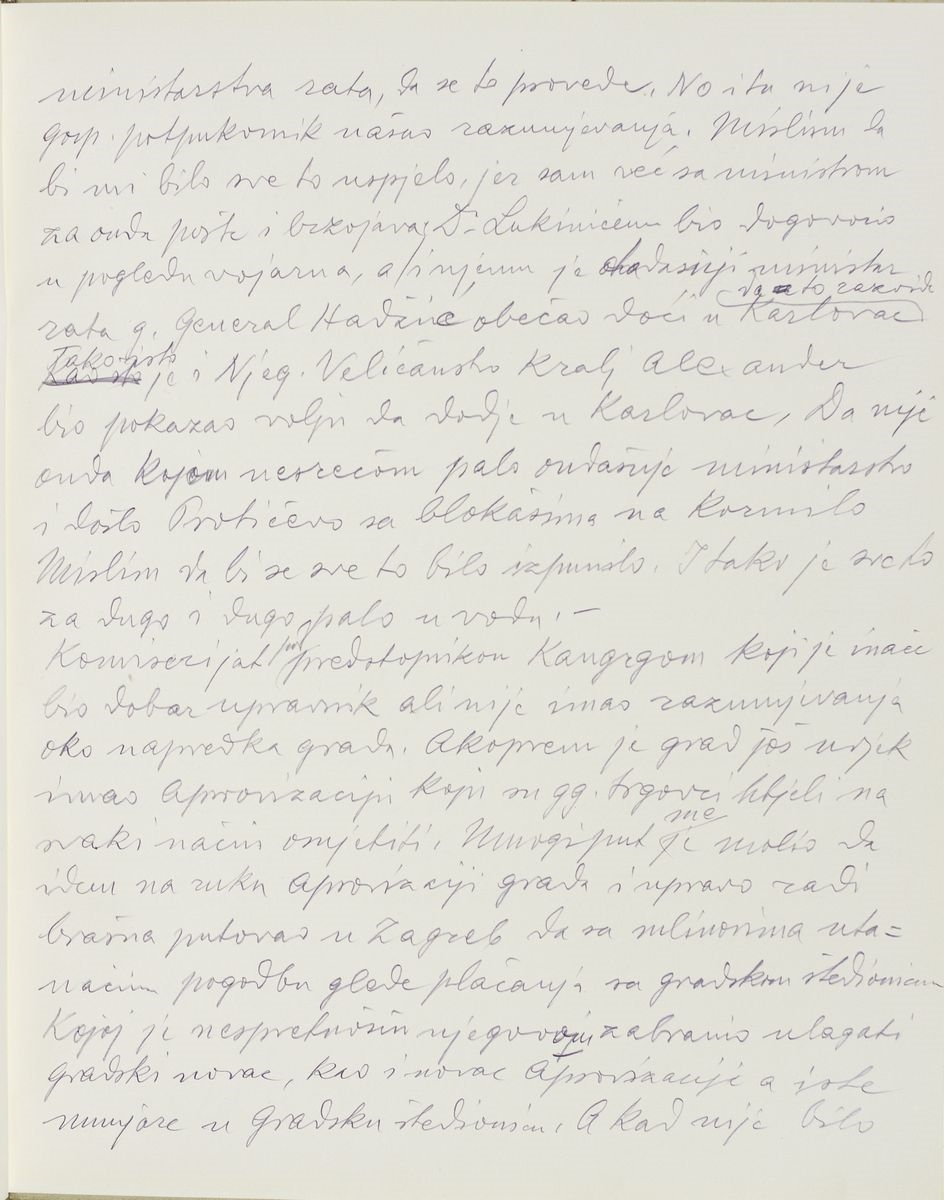 ministarstva rata, da se to provede. No i tu nije
gosp. potpukovnik našao razumjevanja. Mislim da
bi mi bilo sve to uspjelo, jer sam već sa ministrom
za onda pošte i brzojava, Dr Lukinićem bio dogovorio
u pogledu vojarna, a i njemu je ondašnji ministar
da to razvidi
rata g. General Hadžić obećao doći u Karlovac
Tako isto
je i Njeg. Veličanstvo Kralj Alexander
bio pokazao volju da dodje u Karlovac, Da nije
onda kojom nesrećom palo ondašnje ministarstvo
i došlo Protićevo sa blokašima na Kormilo
Mislim da bi se sve to bilo izpunilo. I tako je sve to
za dugo i dugo palo u vodu. –
Komiserijat predstojnikom Kangrgom koji je inače
bio dobar upravnik ali nije imao razumjevanja
oko napredka grada. Akoprem je grad još uvjek
imao Aprovizaciju koju su gg. trgovci htjeli na
svaki način onjetiti, Mnogi put
me
je molio da
idem na ruku Aprovizaciji grada i upravo radi
brašna putovao u Zagreb da sa mlinovima uta=
način pogodbu glede plaćanja sa gradskom štedionicom
Kojoj je nespretnošću njegovom zabranio ulagati
gradski novac, kao i novac Aprovizacije a iste
u Gradsku štedionicu. A kad nije bilo